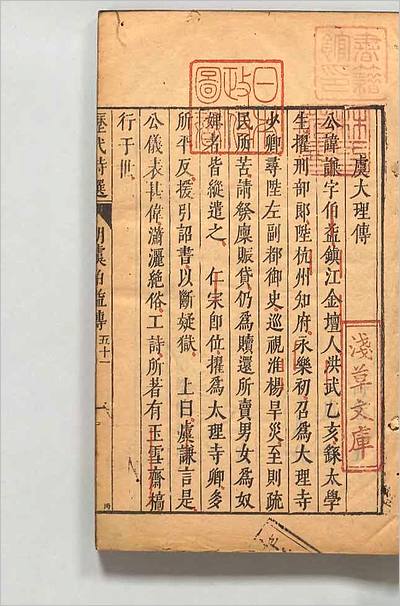 虞大理傳
公諱謙字伯益鎮江金壇人洪武乙亥繇太學
生擢刑部郎陞杭州知府永樂初召爲大理寺
少卿尋陞左副都御史巡視淮楊旱災至則疏
民所苦請發廩賑貸仍爲贖還所賣男女爲奴
婢者皆縱遣之　仁宗卽位擢爲太理寺卿多
所平反援引詔書以斷疑獄　上曰虞謙言是
公儀表甚偉瀟灑絶俗工詩所著有玉雪齋稿
行于世
歷代詩選
明虞伯益傳
五十一
淺草文庫
日本政府圖書